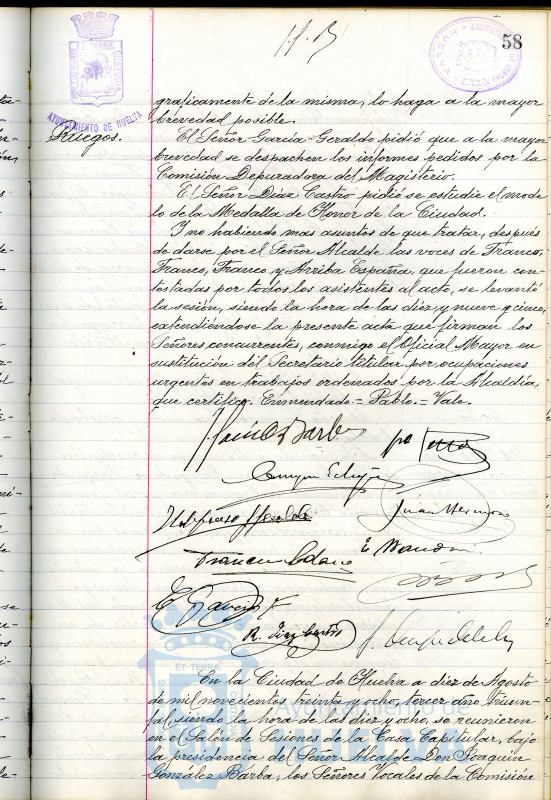 58
AYUNTAMIENTO DE HUELVA
Ruegos.
graficamente de la misma, lo haga a la mayor
brevedad posible.
El Señor García-Geraldo pidió que a la mayor
brevedad se despachen los informes pedidos por la
Comisión Depuradora del Magisterio.
El Señor Díaz Castro pidió se estudie el mode
lo de la Medalla de Honor de la Ciudad.
Y no habiendo mas asuntos de que tratar, después
de darse por el Señor Alcalde las voces de Franco,
Franco, Franco y Arriba España, que fueron con-
testadas por todos los asistentes al acto, se levantó
la sesión, siendo la hora de las diez y nueve y cinco,
extendiéndose la presente acta que firman los
Señores concurrentes, conmigo el Oficial Mayor en
sustitución del Secretario titular por ocupaciones
urgentes en trabajos ordenados por la Alcaldía,
que certifico. Enmendado = Pablo. = Vale.
Juan
R. Díaz Castro
En la Ciudad de Huelva a diez de Agosto
de mil novecientos treinta y ocho, tercer año triun-
fal, siendo la hora de las diez y ocho, se reunieron
en el Salón de Sesiones de la Casa Capitular, bajo
la presidencia del Señor Alcalde Don Joaquín
González Barba, los Señores Vocales de la Comisión